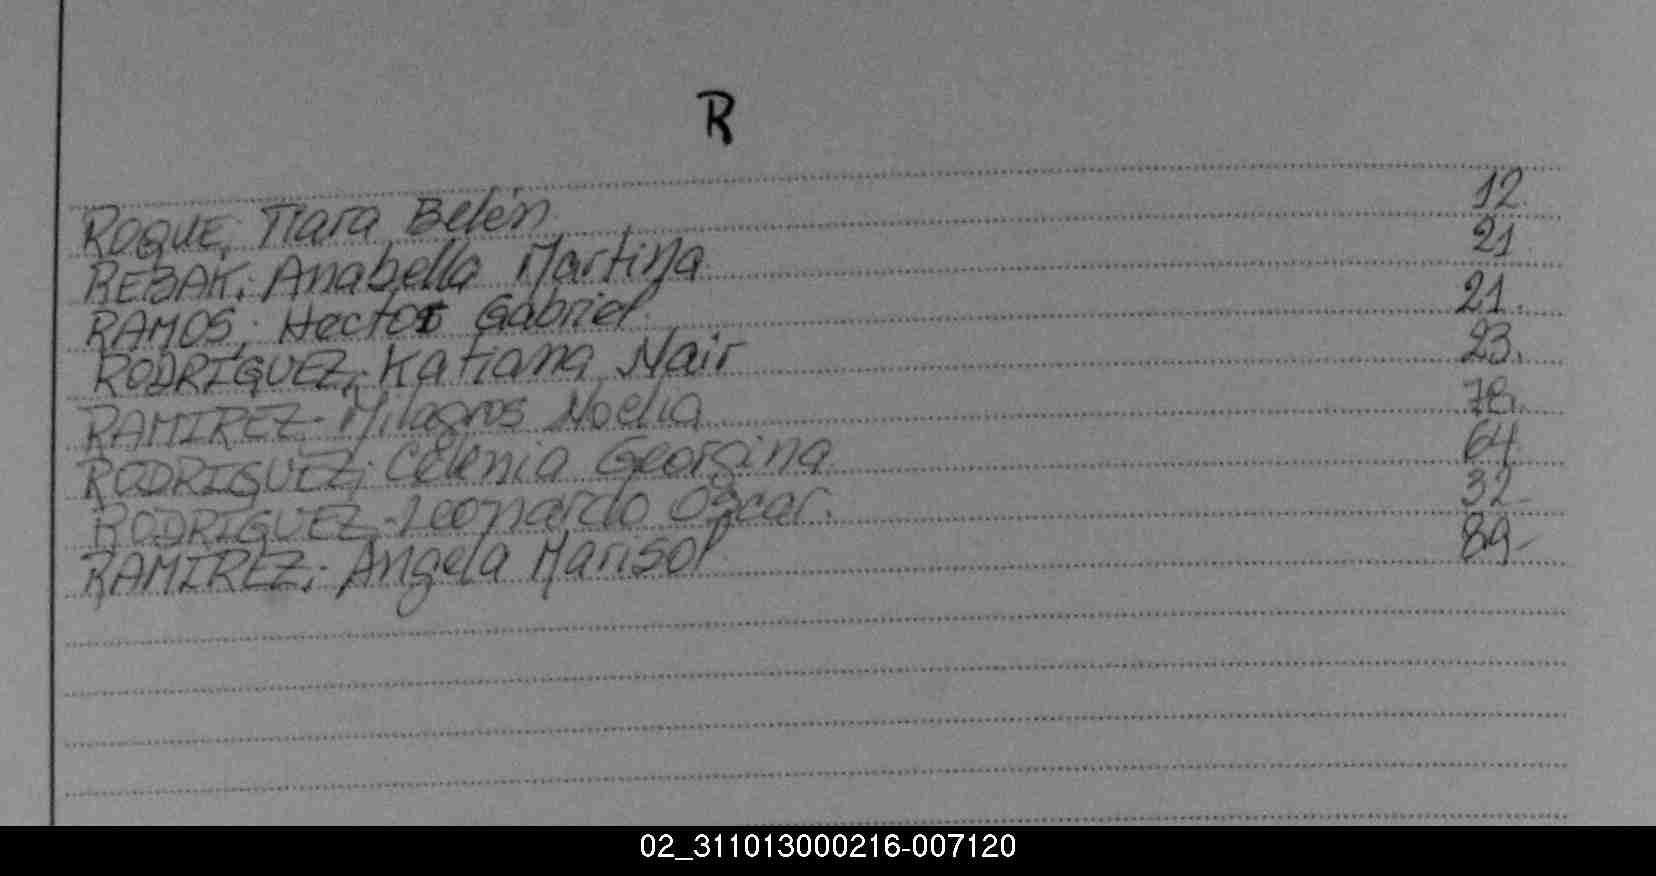 R
ROQUE, Tiara Belén 12.
REBAK; Anabella Martina 21.
RAMOS; Hector Gabriel. 21.
RODRIGUEZ; Katiana Nair 23.
RAMIREZ- Milagros Noelia 78.
RODRIGUEZ; Celenia Georgina 64.
RODRIGUEZ- Leonardo Oscar. 32-
RAMIREZ; Angela Marisol 89-
02_311013000216-007120